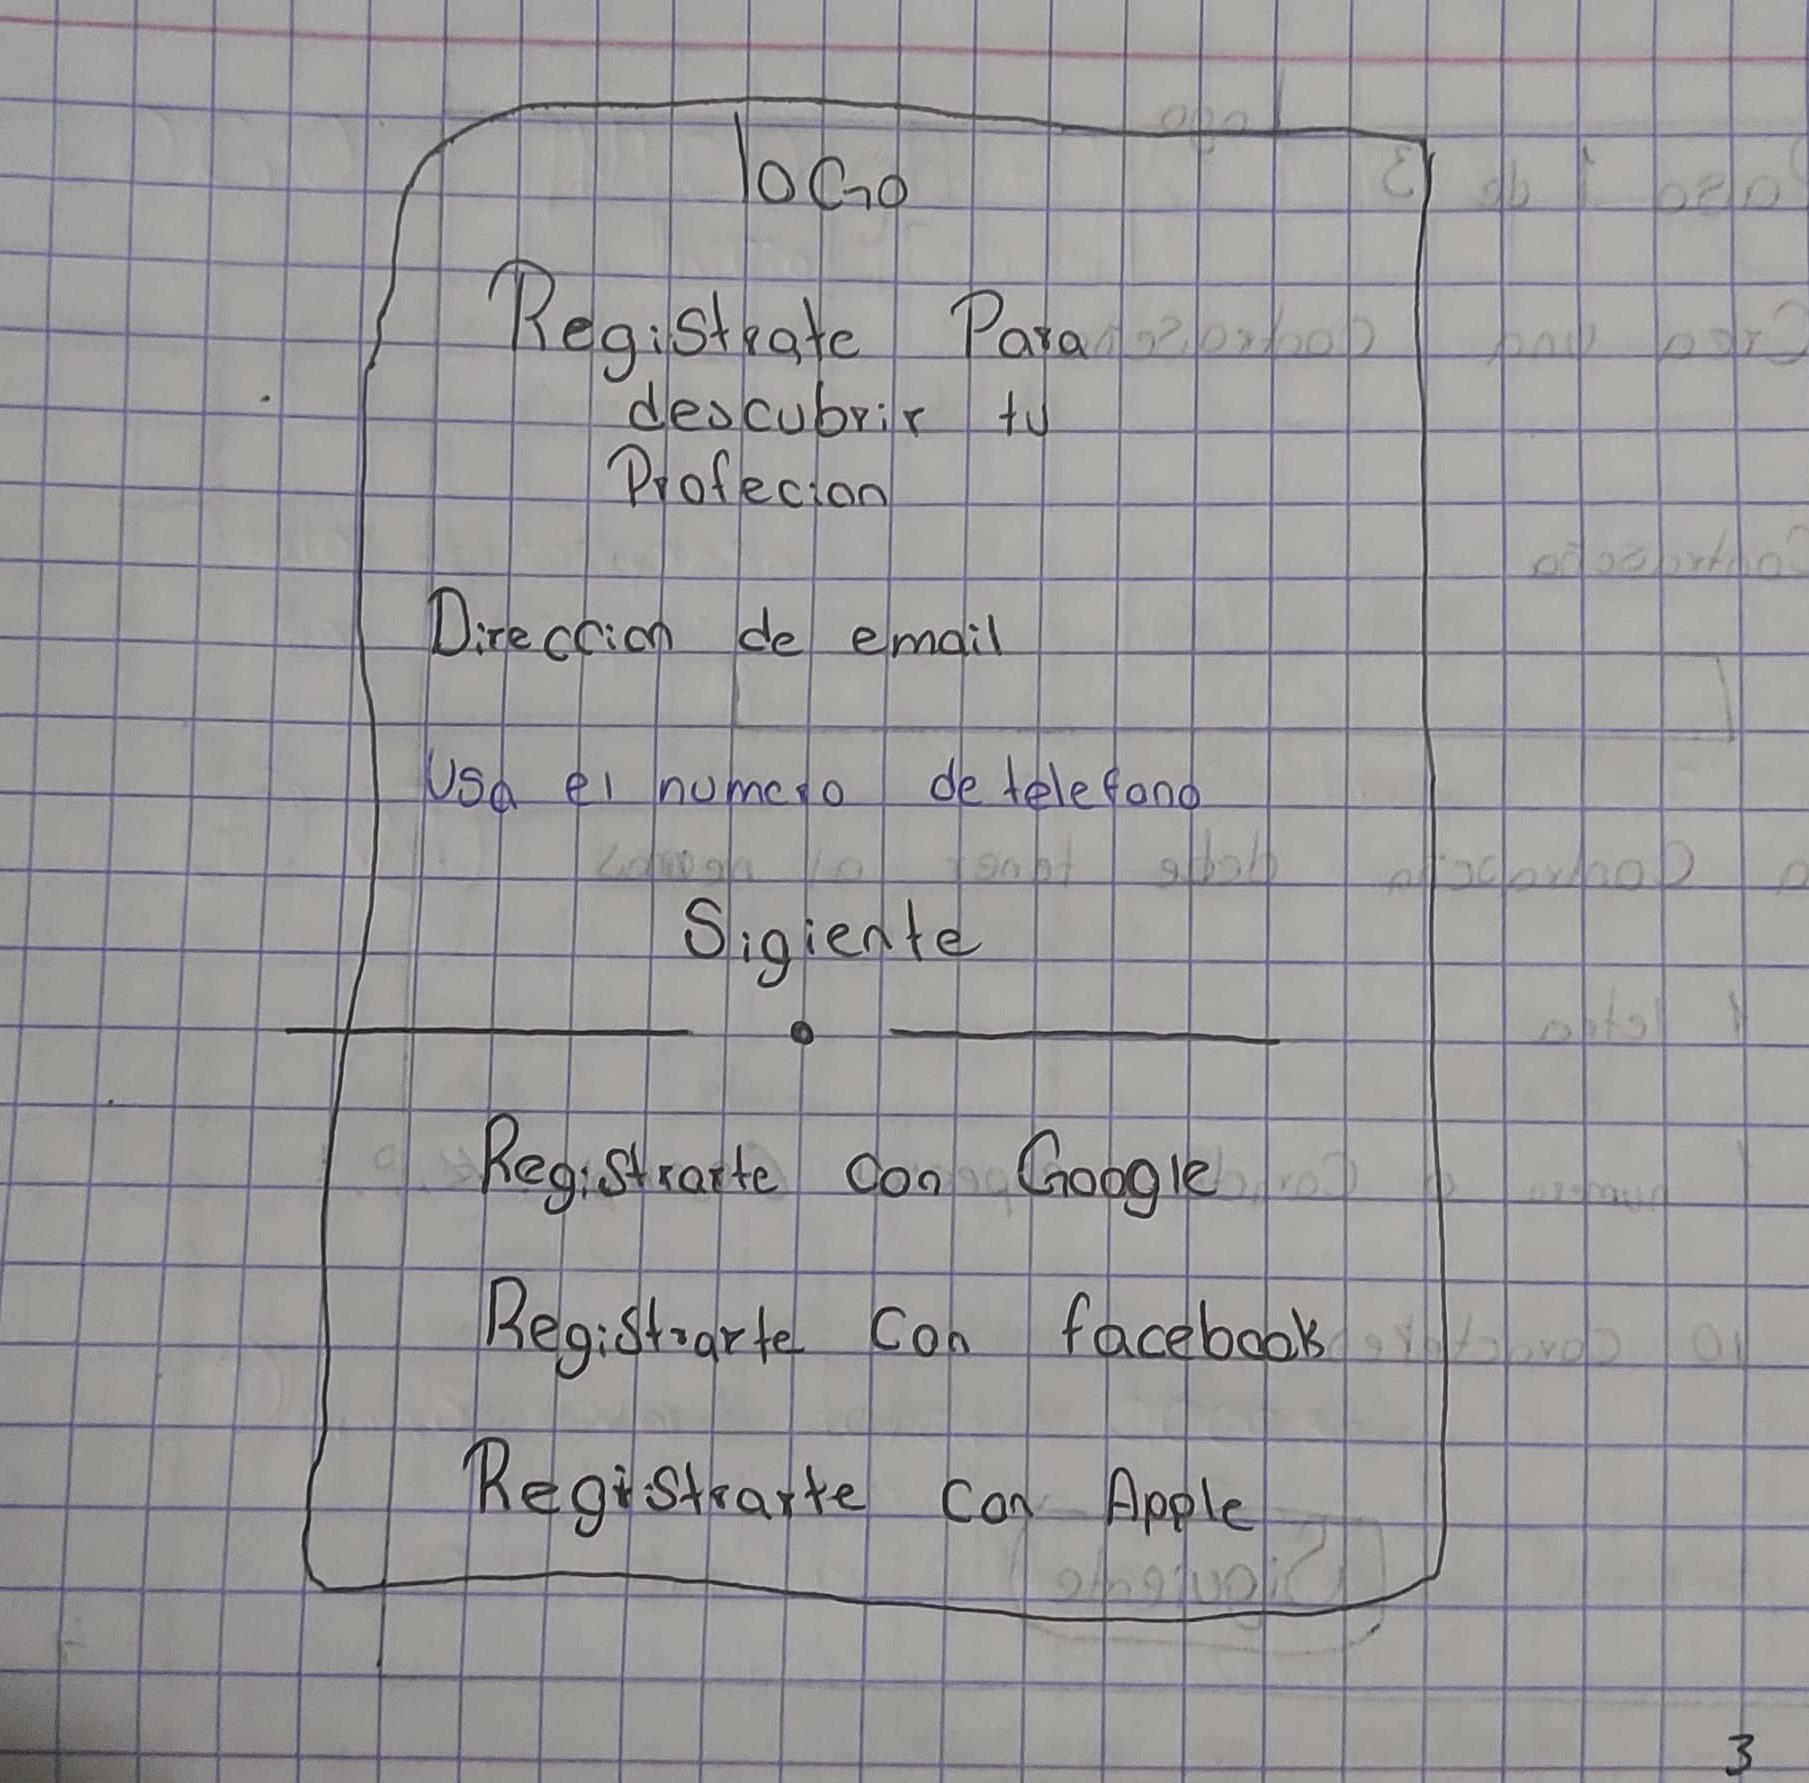 loGo
Registrate Para
descubrir tu
Profecion
Direccion de email
Usa el numero de telefono
Sigiente
Registrarte con Google
Registrarte con facebook
Registrarte con Apple
3